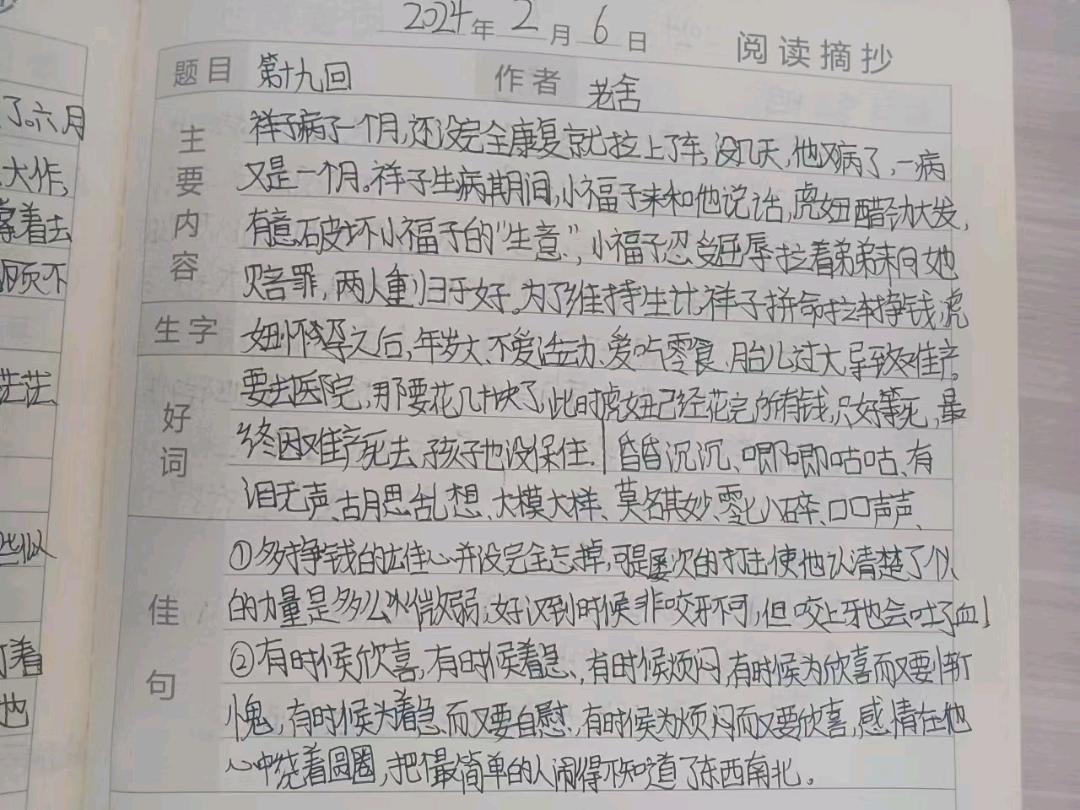 2024年 2月 6日 阅读摘抄
题目 第十九回 作者 老舍
主要内容
祥子病了一个月,还没完全康复就拉上了车,没几天,他又病了,一病
又是一个月。祥子生病期间,小福子来和他说话,虎妞醋劲大发,
有意破坏小福子的“生意”,小福子忍受屈辱拉着弟弟来向她
赔罪,两人重归于好。为了维持生计,祥子拼命拉车挣钱,虎
生字
妞怀孕之后,年岁大、不爱活动、爱吃零食、胎儿过大导致难产。
好词
要去医院,那要花几十块了,此时虎妞已经花完所有钱,只好等死,最
终因难产死去,孩子也没保住.|昏昏沉沉、唧唧咕咕、有
泪无声、胡思乱想、大模大样、莫名其妙、零七八碎、口口声声、
佳句
①多挣钱的雄心并没完全忘掉,可是屡次的打击使他认清楚了个人
的力量是多么微弱;好汉到时候非咬牙不可,但咬上牙也会吐了血!
②有时候欣喜,有时候着急,有时候烦闷,有时候为欣喜而又要惭
愧,有时候为着急而又要自慰,有时候为烦闷而又要欣喜,感情在他
心中绕着圆圈,把个最简单的人闹得不知道了东西南北。
了。六月
大作,
着去
顾不
茫茫
些似
着
也